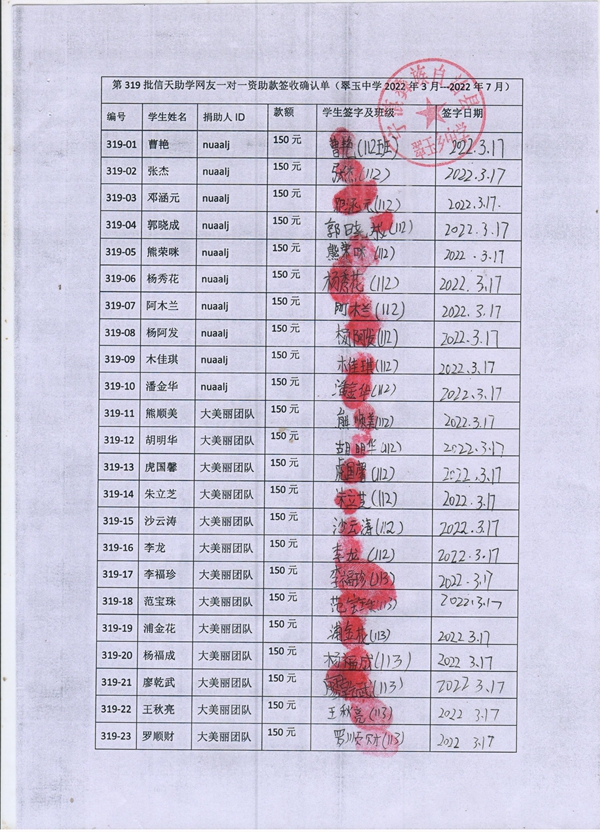 第 319 批信天助学网友一对一资助款签收确认单（翠玉中学 2022 年 3 月---2022 年 7 月）
编号 学生姓名 捐助人 ID 款额 学生签字及班级 签字日期
319-01 曹艳 nuaalj 150 元 曹艳(112班) 2022.3.17
319-02 张杰 nuaalj 150 元 张杰(112) 2022.3.17
319-03 邓涵元 nuaalj 150 元 邓涵元(112) 2022.3.17.
319-04 郭晓成 nuaalj 150 元 郭晓成(112) 2022.3.17
319-05 熊荣咪 nuaalj 150 元 熊荣咪(112) 2022.3.17
319-06 杨秀花 nuaalj 150 元 杨秀花(112) 2022.3.17
319-07 阿木兰 nuaalj 150 元 阿木兰(112) 2022.3.17
319-08 杨阿发 nuaalj 150 元 杨阿发(112) 2022.3.17
319-09 木佳琪 nuaalj 150 元 木佳琪(112) 2022.3.17
319-10 潘金华 nuaalj 150 元 潘金华(112) 2022.3.17
319-11 熊顺美 大美丽团队 150 元 熊顺美(112) 2022.3.17
319-12 胡明华 大美丽团队 150 元 胡明华(112) 2022.3.17
319-13 虎国馨 大美丽团队 150 元 虎国馨(112) 2022.3.17
319-14 朱立芝 大美丽团队 150 元 朱立芝(112) 2022.3.17
319-15 沙云涛 大美丽团队 150 元 沙云涛(112) 2022.3.17
319-16 李龙 大美丽团队 150 元 李龙(112) 2022.3.17
319-17 李福珍 大美丽团队 150 元 李福珍(113) 2022.3.17
319-18 范宝珠 大美丽团队 150 元 范宝珠(113) 2022.3.17
319-19 浦金花 大美丽团队 150 元 浦金花(113) 2022.3.17
319-20 杨福成 大美丽团队 150 元 杨福成(113) 2022 3.17
319-21 廖乾武 大美丽团队 150 元 廖乾武(113) 2022 3.17
319-22 王秋亮 大美丽团队 150 元 王秋亮(113) 2022 3.17
319-23 罗顺财 大美丽团队 150 元 罗顺财(113) 2022 3.17